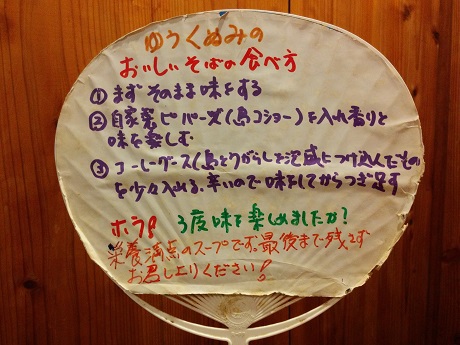 ゆうくぬみの
おいしいそばの食べ方
① まずそのまま味をする
② 自家菜ピパーズ(島コショー)を入れ香りと
味を楽しむ
③ コーレーグース(島とうがらしを泡盛につけ込んだもの
を少々入れる。辛いので味をしてからつぎ足す
ホラ! 3度味を楽しめましたか?
栄養満点のスープです。最後まで残さず
お召し上りください!